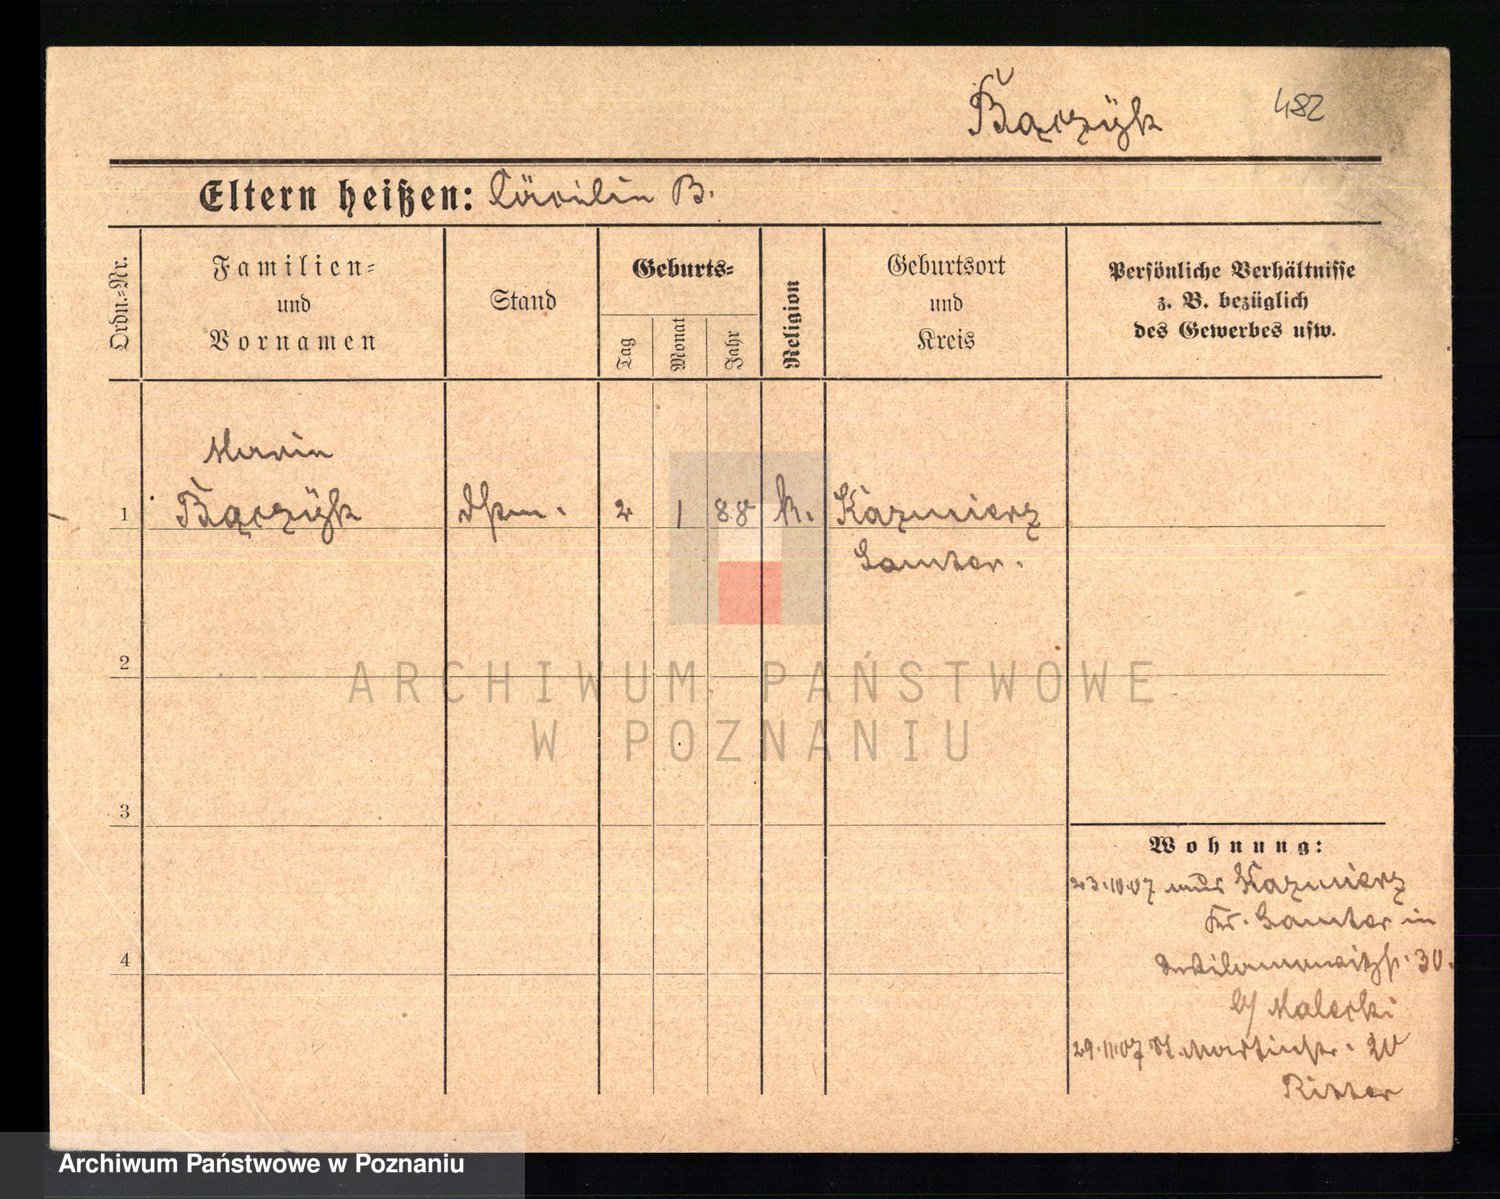 Bączÿk 482
Eltern heißen: Cäcilie B.
Ordn.-Nr.
Familien-
und
Vornamen
Stand
Geburts-
Tag
Monat
Jahr
Religion
Geburtsort
und
Kreis
Persönliche Verhältnisse
z. B. bezüglich
des Gewerbes usw.
Marie
1 Bączÿk 2 1 88 k. Kazmierz
Samter.
2
3
4
Wohnung:
23.10.07 Kazmierz
Kr. Samter in
30.
b/ Malecki
29.11.07 St. Martinstr. 20
Ritter
ARCHIWUM PAŃSTWOWE
W POZNANIU
Archiwum Państwowe w Poznaniu